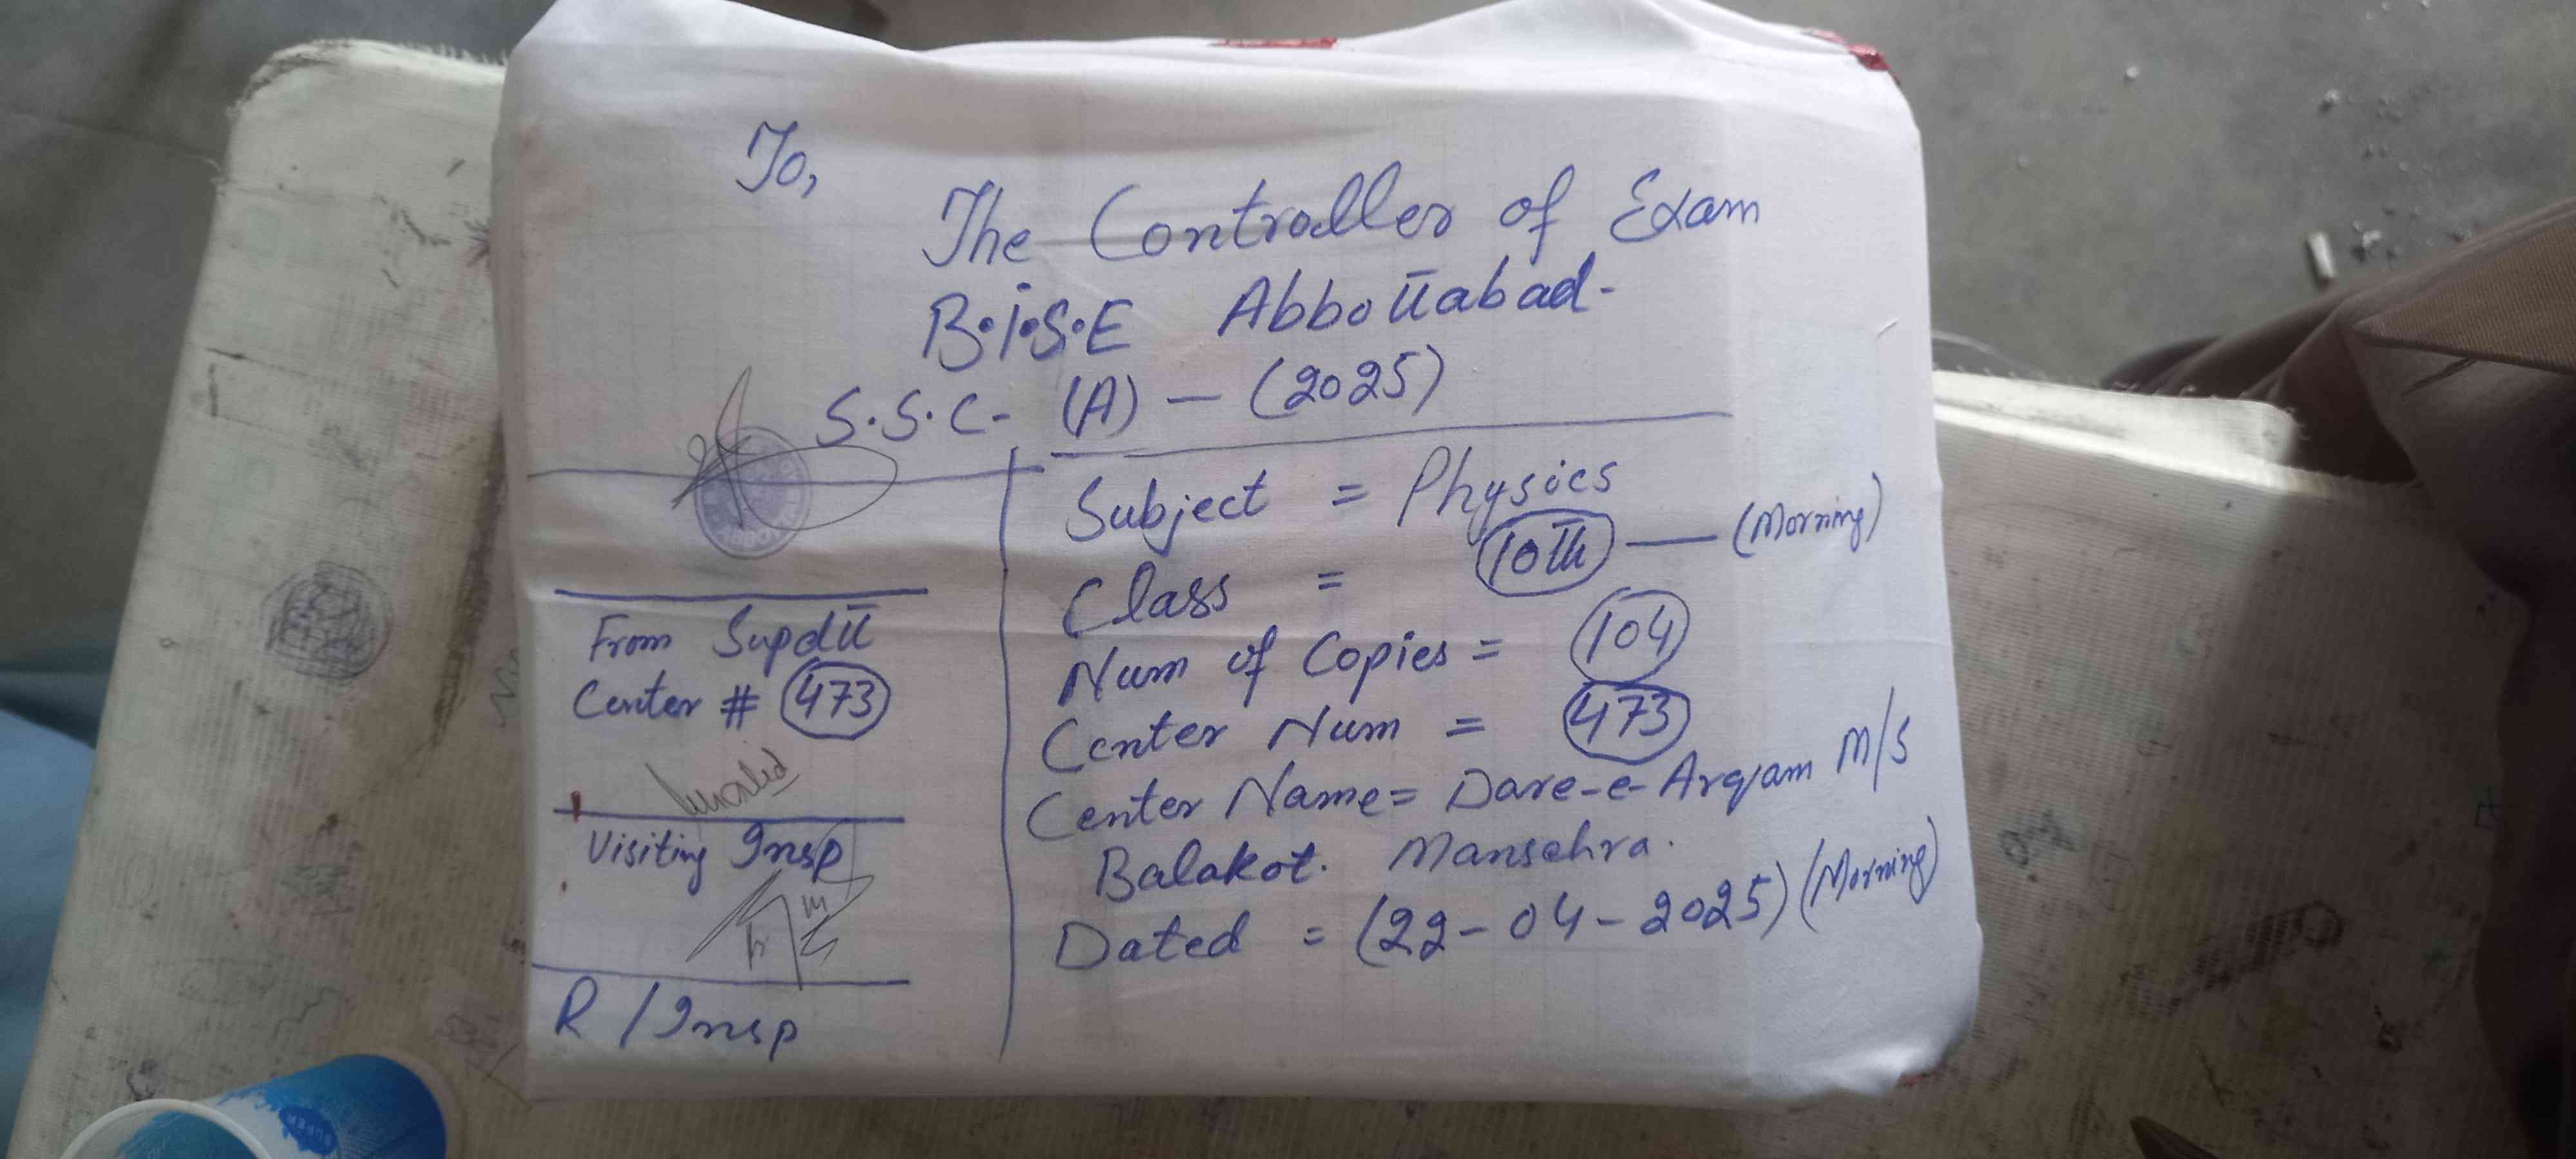 To,
The Controller of Exam
B.I.S.E Abbottabad-
S.S.C- (A) — (2025)
From Supdtt
Center # 473
Visiting Insp
R / Insp
Subject = Physics
Class = 10th — (Morning)
Num of Copies = 104
Center Num = 473
Center Name = Dare-e-Arqam M/S
Balakot. Mansehra.
Dated = (22-04-2025) (Morning)